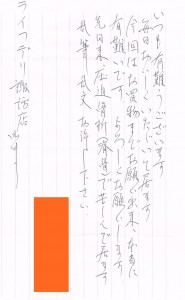 いつも有難うございます
毎日おいしくいただいて居ります
今回はお買物までお願い出来、本当に
有難いです。よろしくお願いします
先日来圧迫骨折(脊骨)で苦しんで居ます
乱筆乱文お許し下さい。
ライフデリ 店